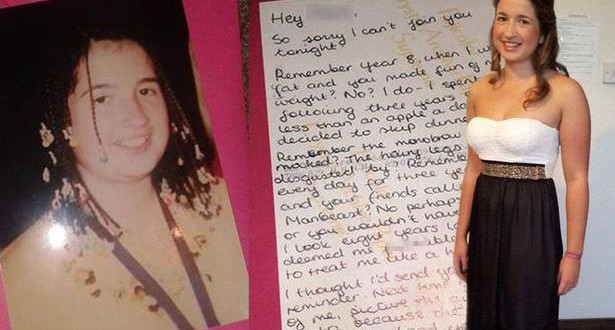 Hey
So sorry I can't join you
tonight?
Remember year 8, when I w
fat and you made fun of m
weight? No? I do - I spent
following three years
less than an apple a da
decided to skip dinne
Remember the monobrow
mocked? The hairy legs
disgusted by? Remembe
every day for three ye
and your friends calle
Manbeast? No perhap
or you wouldn't have
I look eight years l
deemed me ble
to treat me like a h
I thought I'd send you
reminder. Next time
of me, picture the
because the